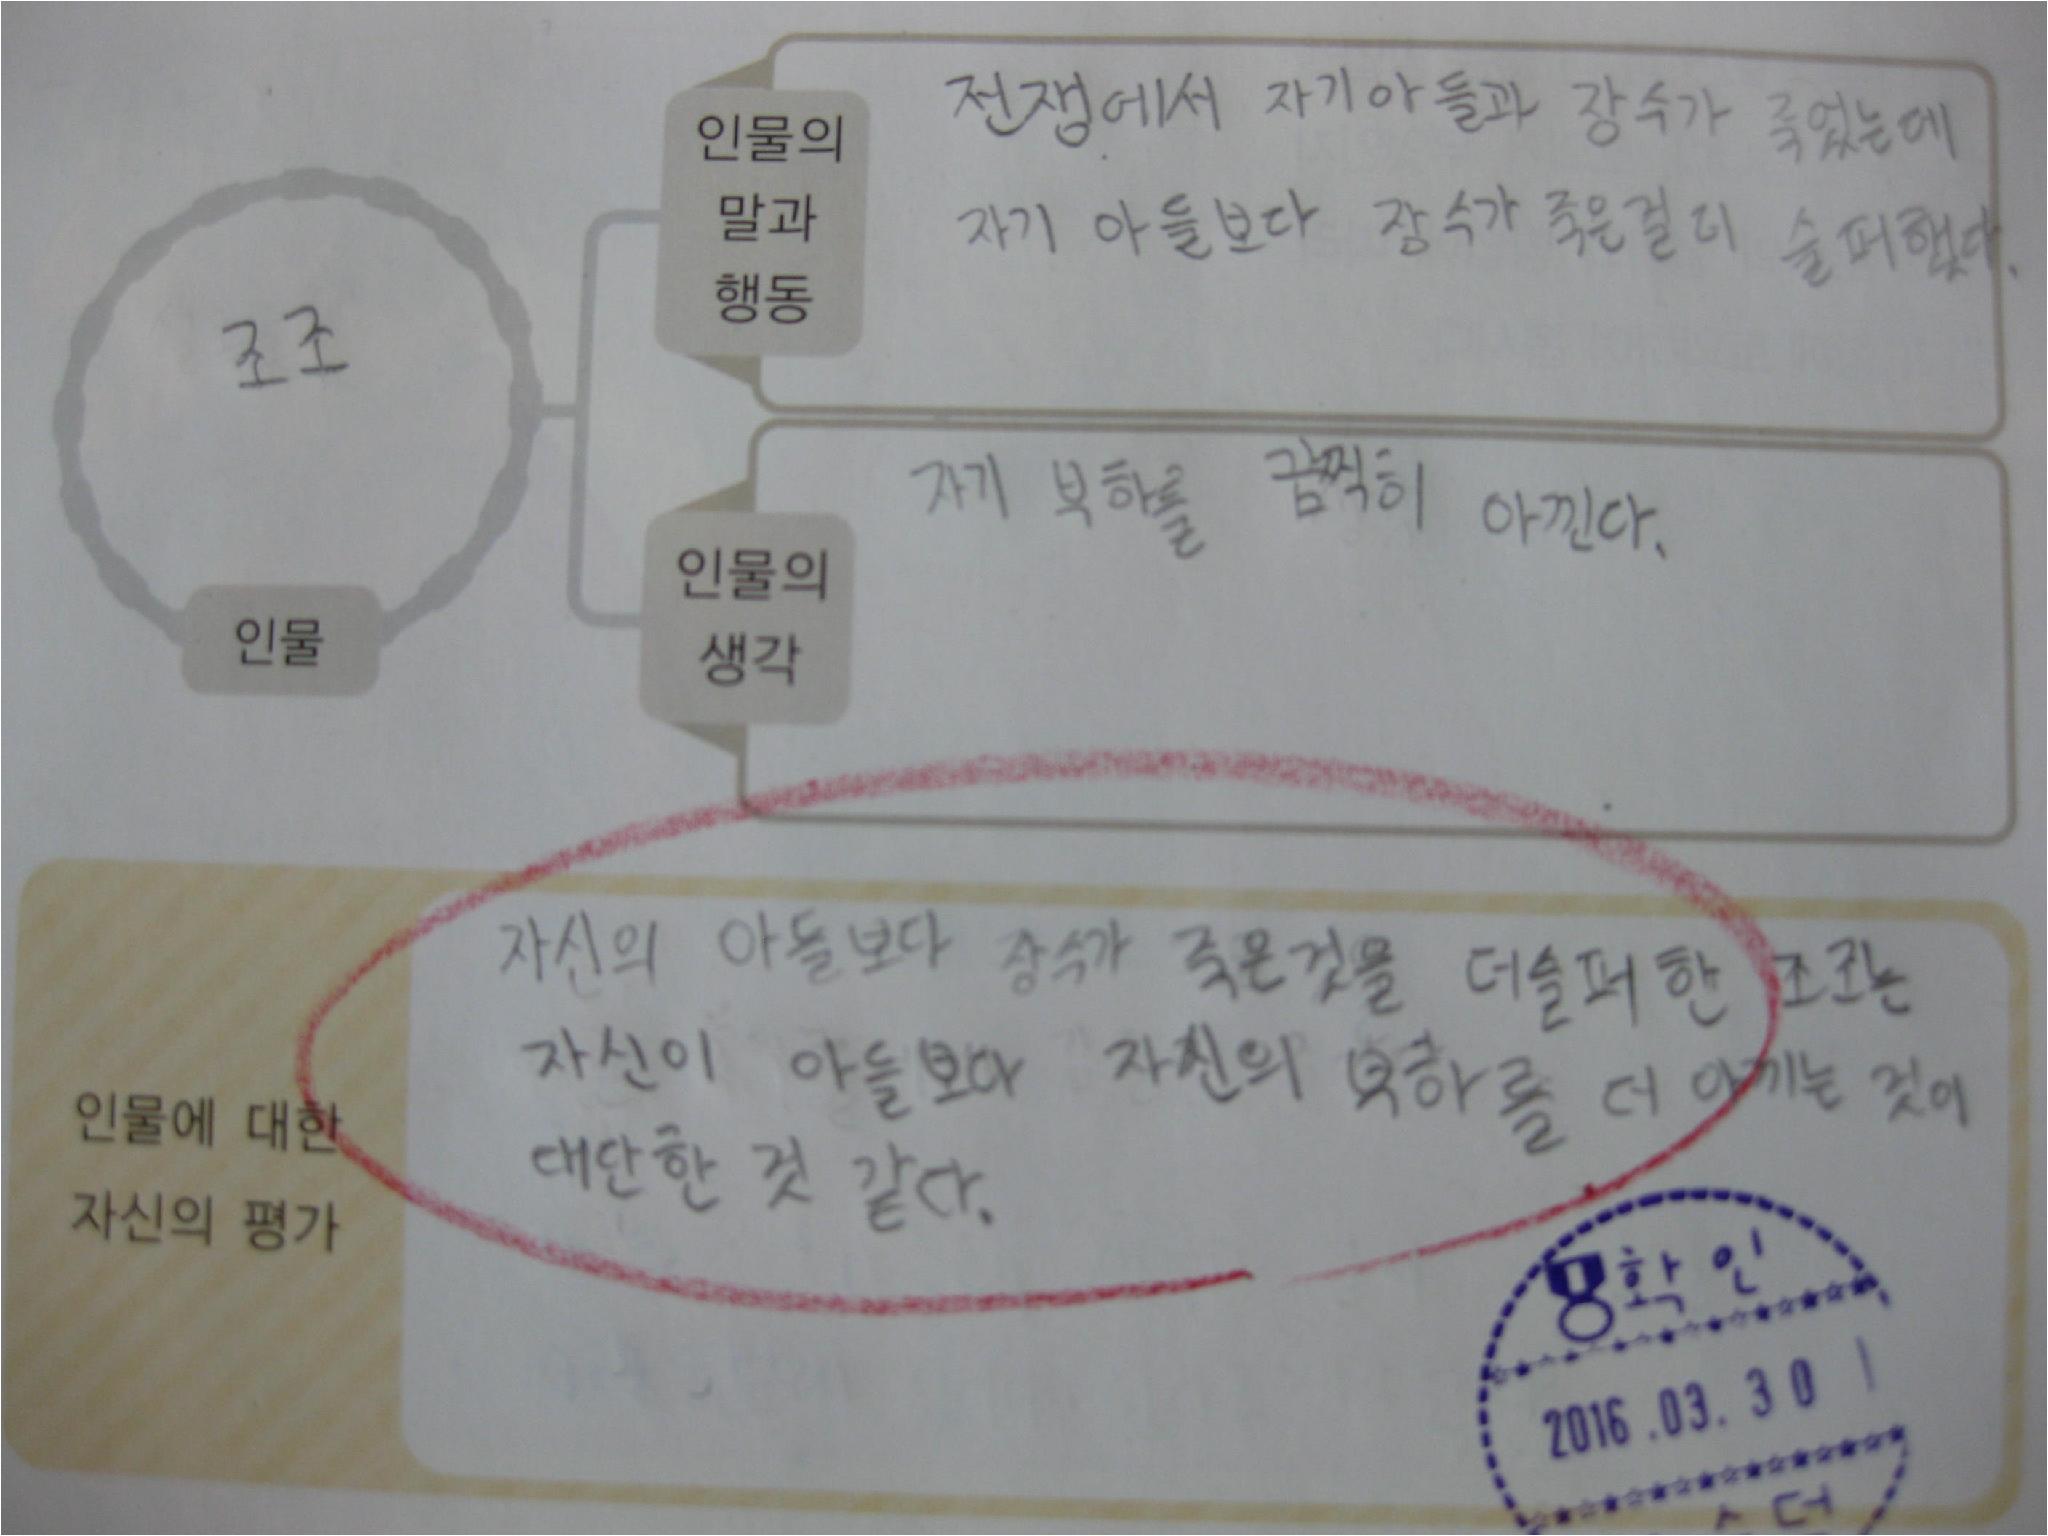 조조
인물
인물의
말과
행동
전쟁에서 자기아들과 장수가 죽었는데
자기 아들보다 장수가 죽은걸 더 슬퍼했다.
인물의
생각
자기 부하를 끔찍히 아낀다.
인물에 대한
자신의 평가
자신의 아들보다 장수가 죽은것을 더슬퍼한 조조는
자신이 아들보다 자신의 부하를 더 아끼는 것이
대단한 것 같다.
확인
2016.03.30